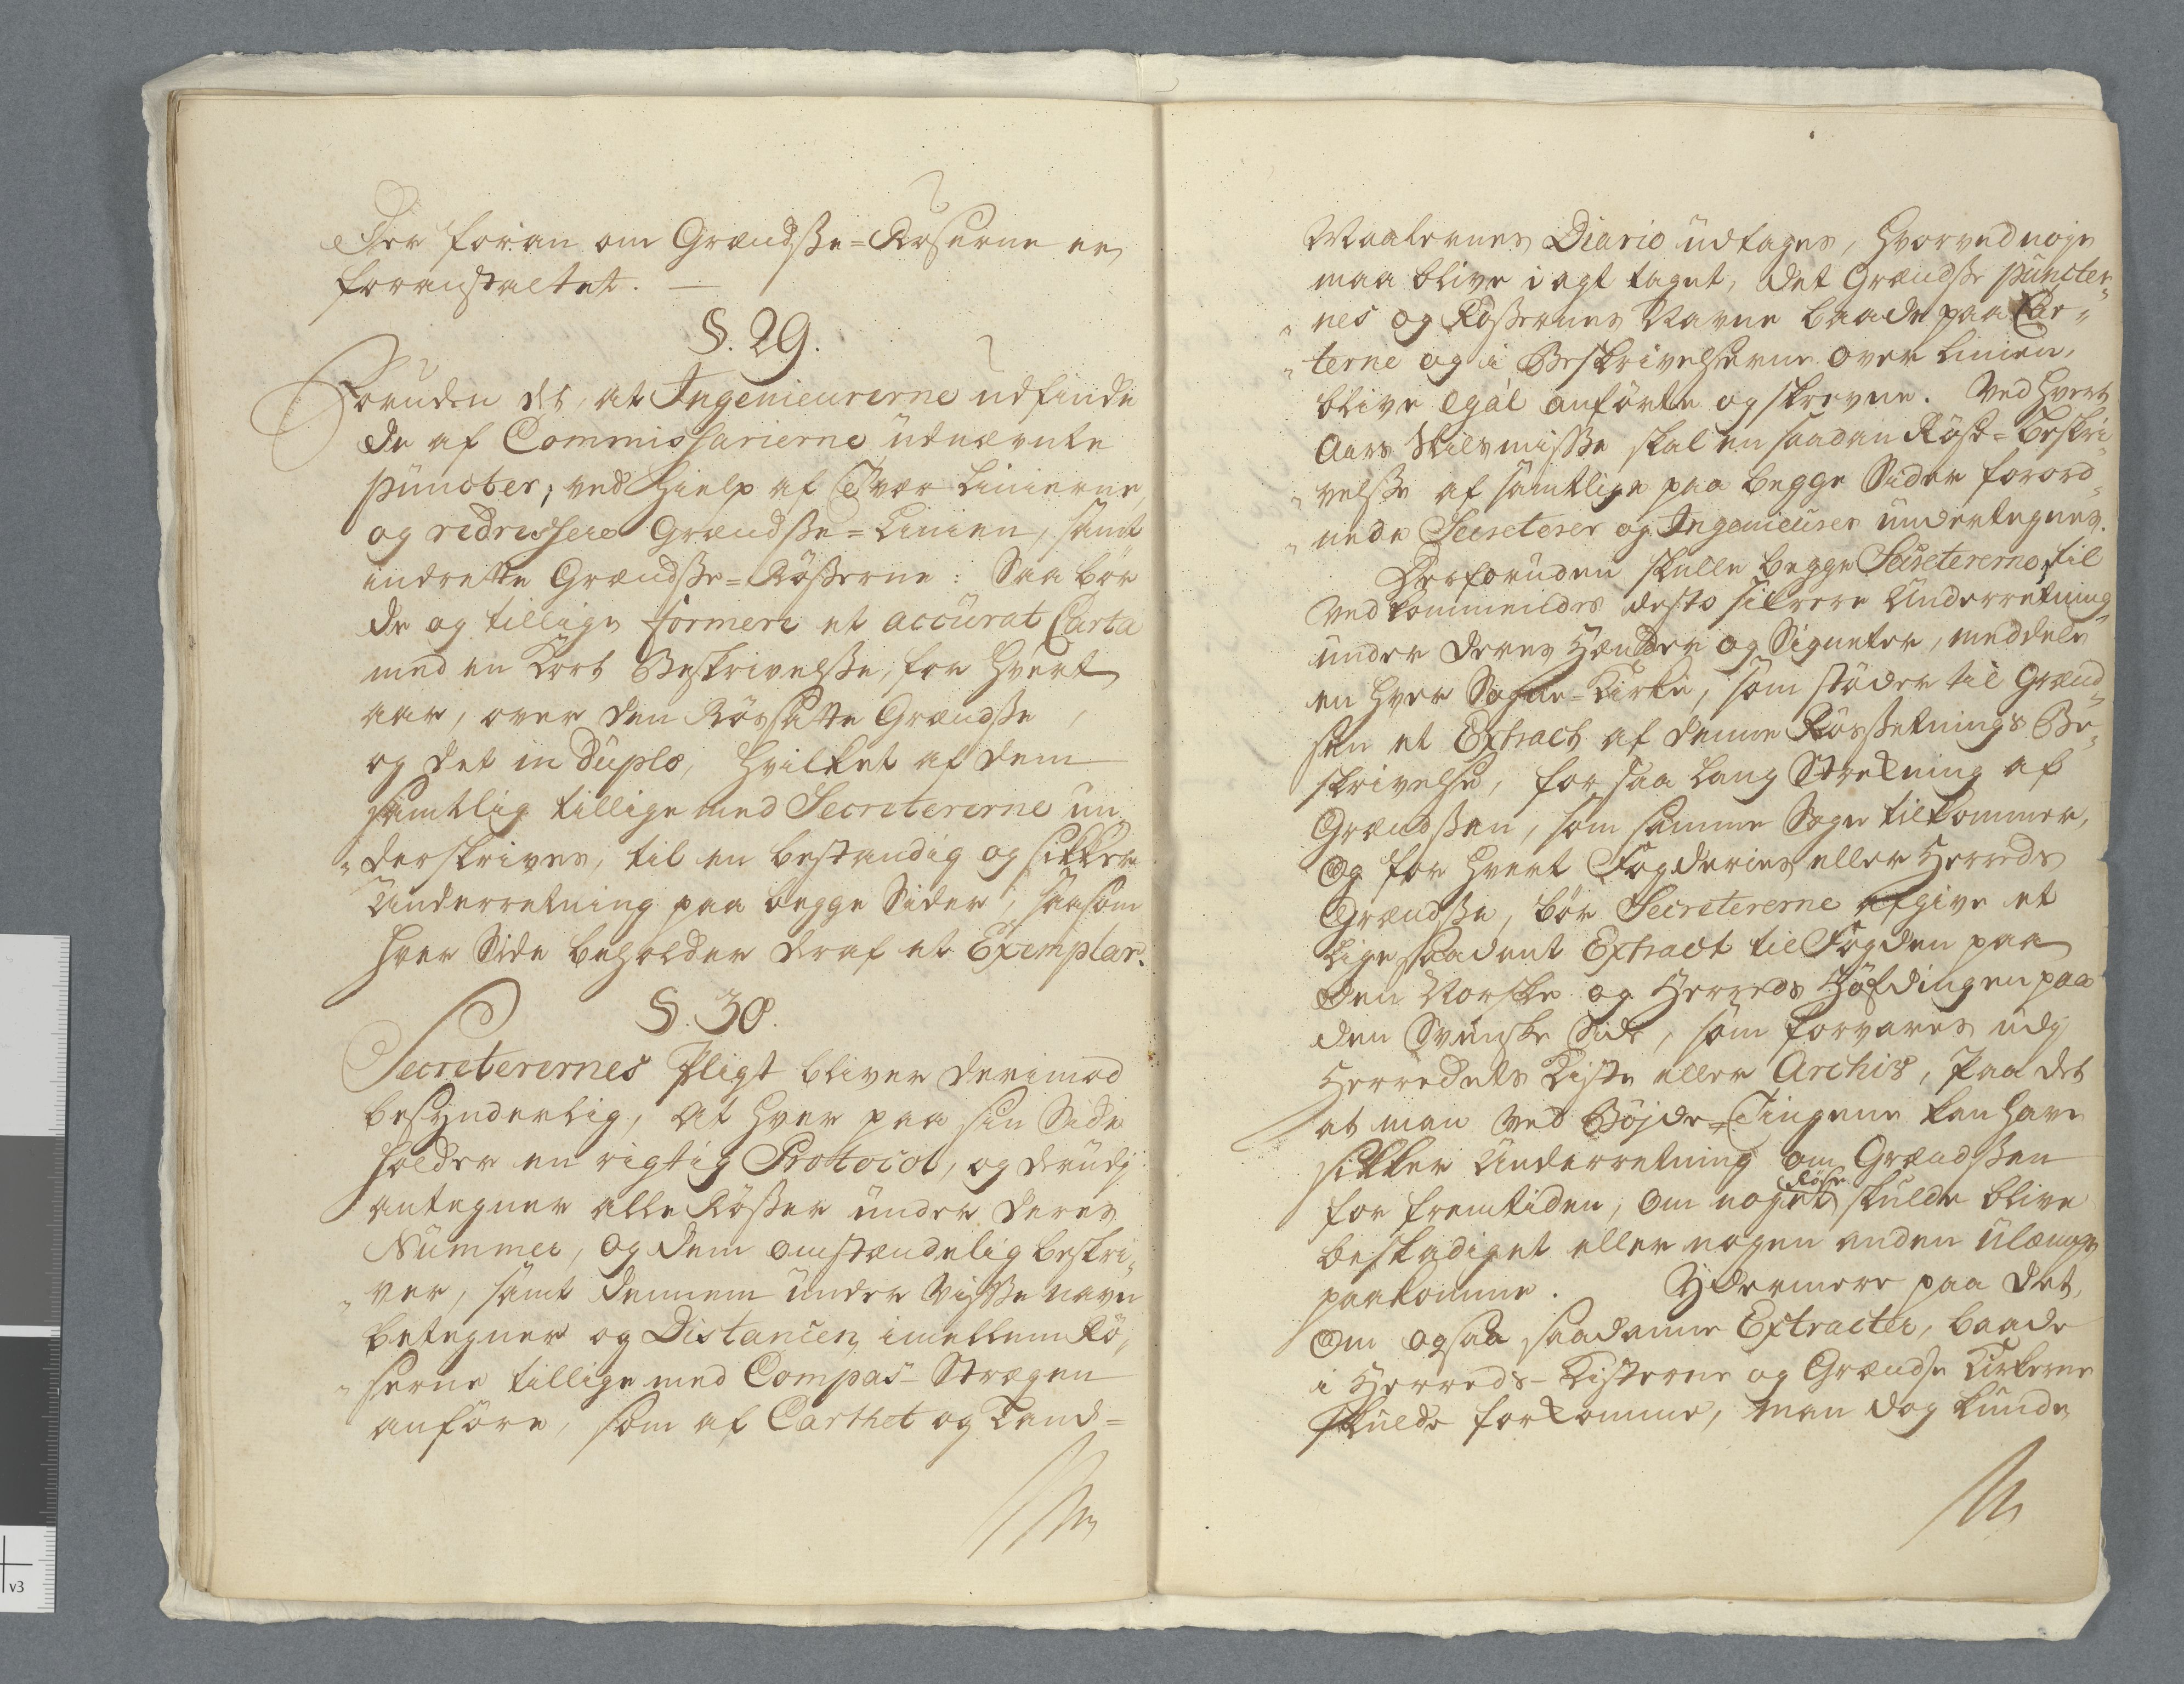 der foran om Grændsse=Röserne er
foranstaltet. —
§. 29.
Foruden det, at Ingenieurerne udfinde
de af Commissarierne udnævnte
puncter, ved Hielp af Tvær Linierne,
og redressere Grændsse=Linien, samt
indrette Grændsse=Rösserne: Saa bör
de og tillige formere et accurat Carta
med en Kort Beskrivelsse, for hvert
aar, over den Rössatte Grændsse,
og det in duplo, hvilket af dem
samtlig tillige med Secretererne un„
„derskrives, til en bestandig og sikker
Underretning paa begge Sider, saasom
hver Side beholder deraf et Exemplar.
§. 30.
Secreterernes Pligt bliver derimod
besynderlig, at hver paa sin Side
holder en rigtig Protocol, og derudj
antegner alle Rösser under deres
Nummer, og dem omstændelig beskri„
„ver, samt dennem under Visse navn
betegner og Distancen imellem Rö„
„serne tillige med Compas-Strægen
anföre, som af Carthet og Land=
Maalernes Diario udtages, hvorved nöye
maa blive i agt taget, det Grændsse puncter„
„nes og Rössernes Navne baade paa Car„
„terne og i Beskrivelserne over Linien,
blive egal anförte og skrevne. Ved hvert
Aars Skilsmisse skal en saadan Röse=beskri„
„velsse af samtlige paa begge Sider forord„
„nede Secreterer og Ingenieurer undertegnes.
Derforuden skulle begge Secretererne, til
Vedkommendes desto sikrere Underretning
under deres Hænder og Signeter, meddele
en hver Sogne=Kirke, som stöder til Grænd„
sen et Extract af denne Rössetnings Be„
skrivelse, for saa lang Strekning af
Grændssen, som samme Sogn tilkommer,
Og for hvert Fogderies eller Herreds
Grændsse, bör Secretererne afgive et
Lige saadant Extract til Fogden paa
den Norske og Herreds Höfdingen paa
den Svenske Side, som forvares udj
Herredets Kiste eller Archiv, paa det
at man ved Böjde=Tingene kan have
sikker Underretning om Grændssen
for fremtiden, om noget Röse skulde blive
beskadiget eller nogen anden ulæmpe
paakomme. Ydermere paa det,
Om ogsaa saadanne Extracter, baade
i Herreds-Kisterne og Grændse Kirkerne
skulde forkomme, man dog kunde